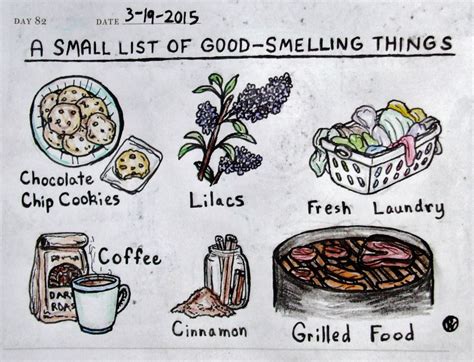 DAY 82 DATE 3-19-2015
A SMALL LIST OF GOOD-SMELLING THINGS
Chocolate
Chip Cookies
Lilacs
Fresh Laundry
Coffee
DARK
ROAST
Cinnamon
Grilled Food